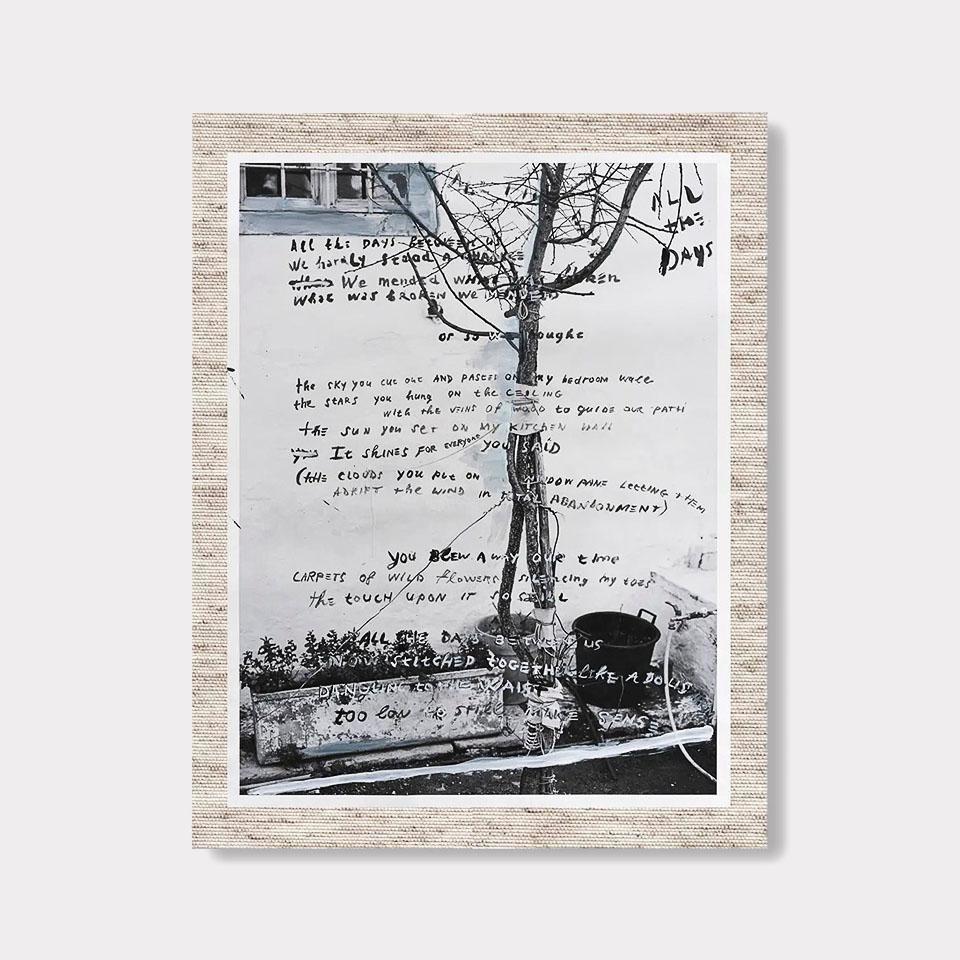 ALL
THE
DAYS
All the DAYS BETWEEN us
We hardly stood A CHANCE
We mended what was broken
What was broken we mended
or so we thought
the sky you cut out AND PASTED ON my bedroom wall
the stars you hung on the ceiling
with the veins of wood to guide our path
the sun you set on my kitchen wall
It shines for everyone you said
(the clouds you put on window pane letting them
adrift the wind in total abandonment)
you blew away our time
carpets of wild flowers silencing my toes
the touch upon it so
ALL THE DAYS BETWEEN US
now stitched together like a doll's
dangling to the waist
too low to still make sense